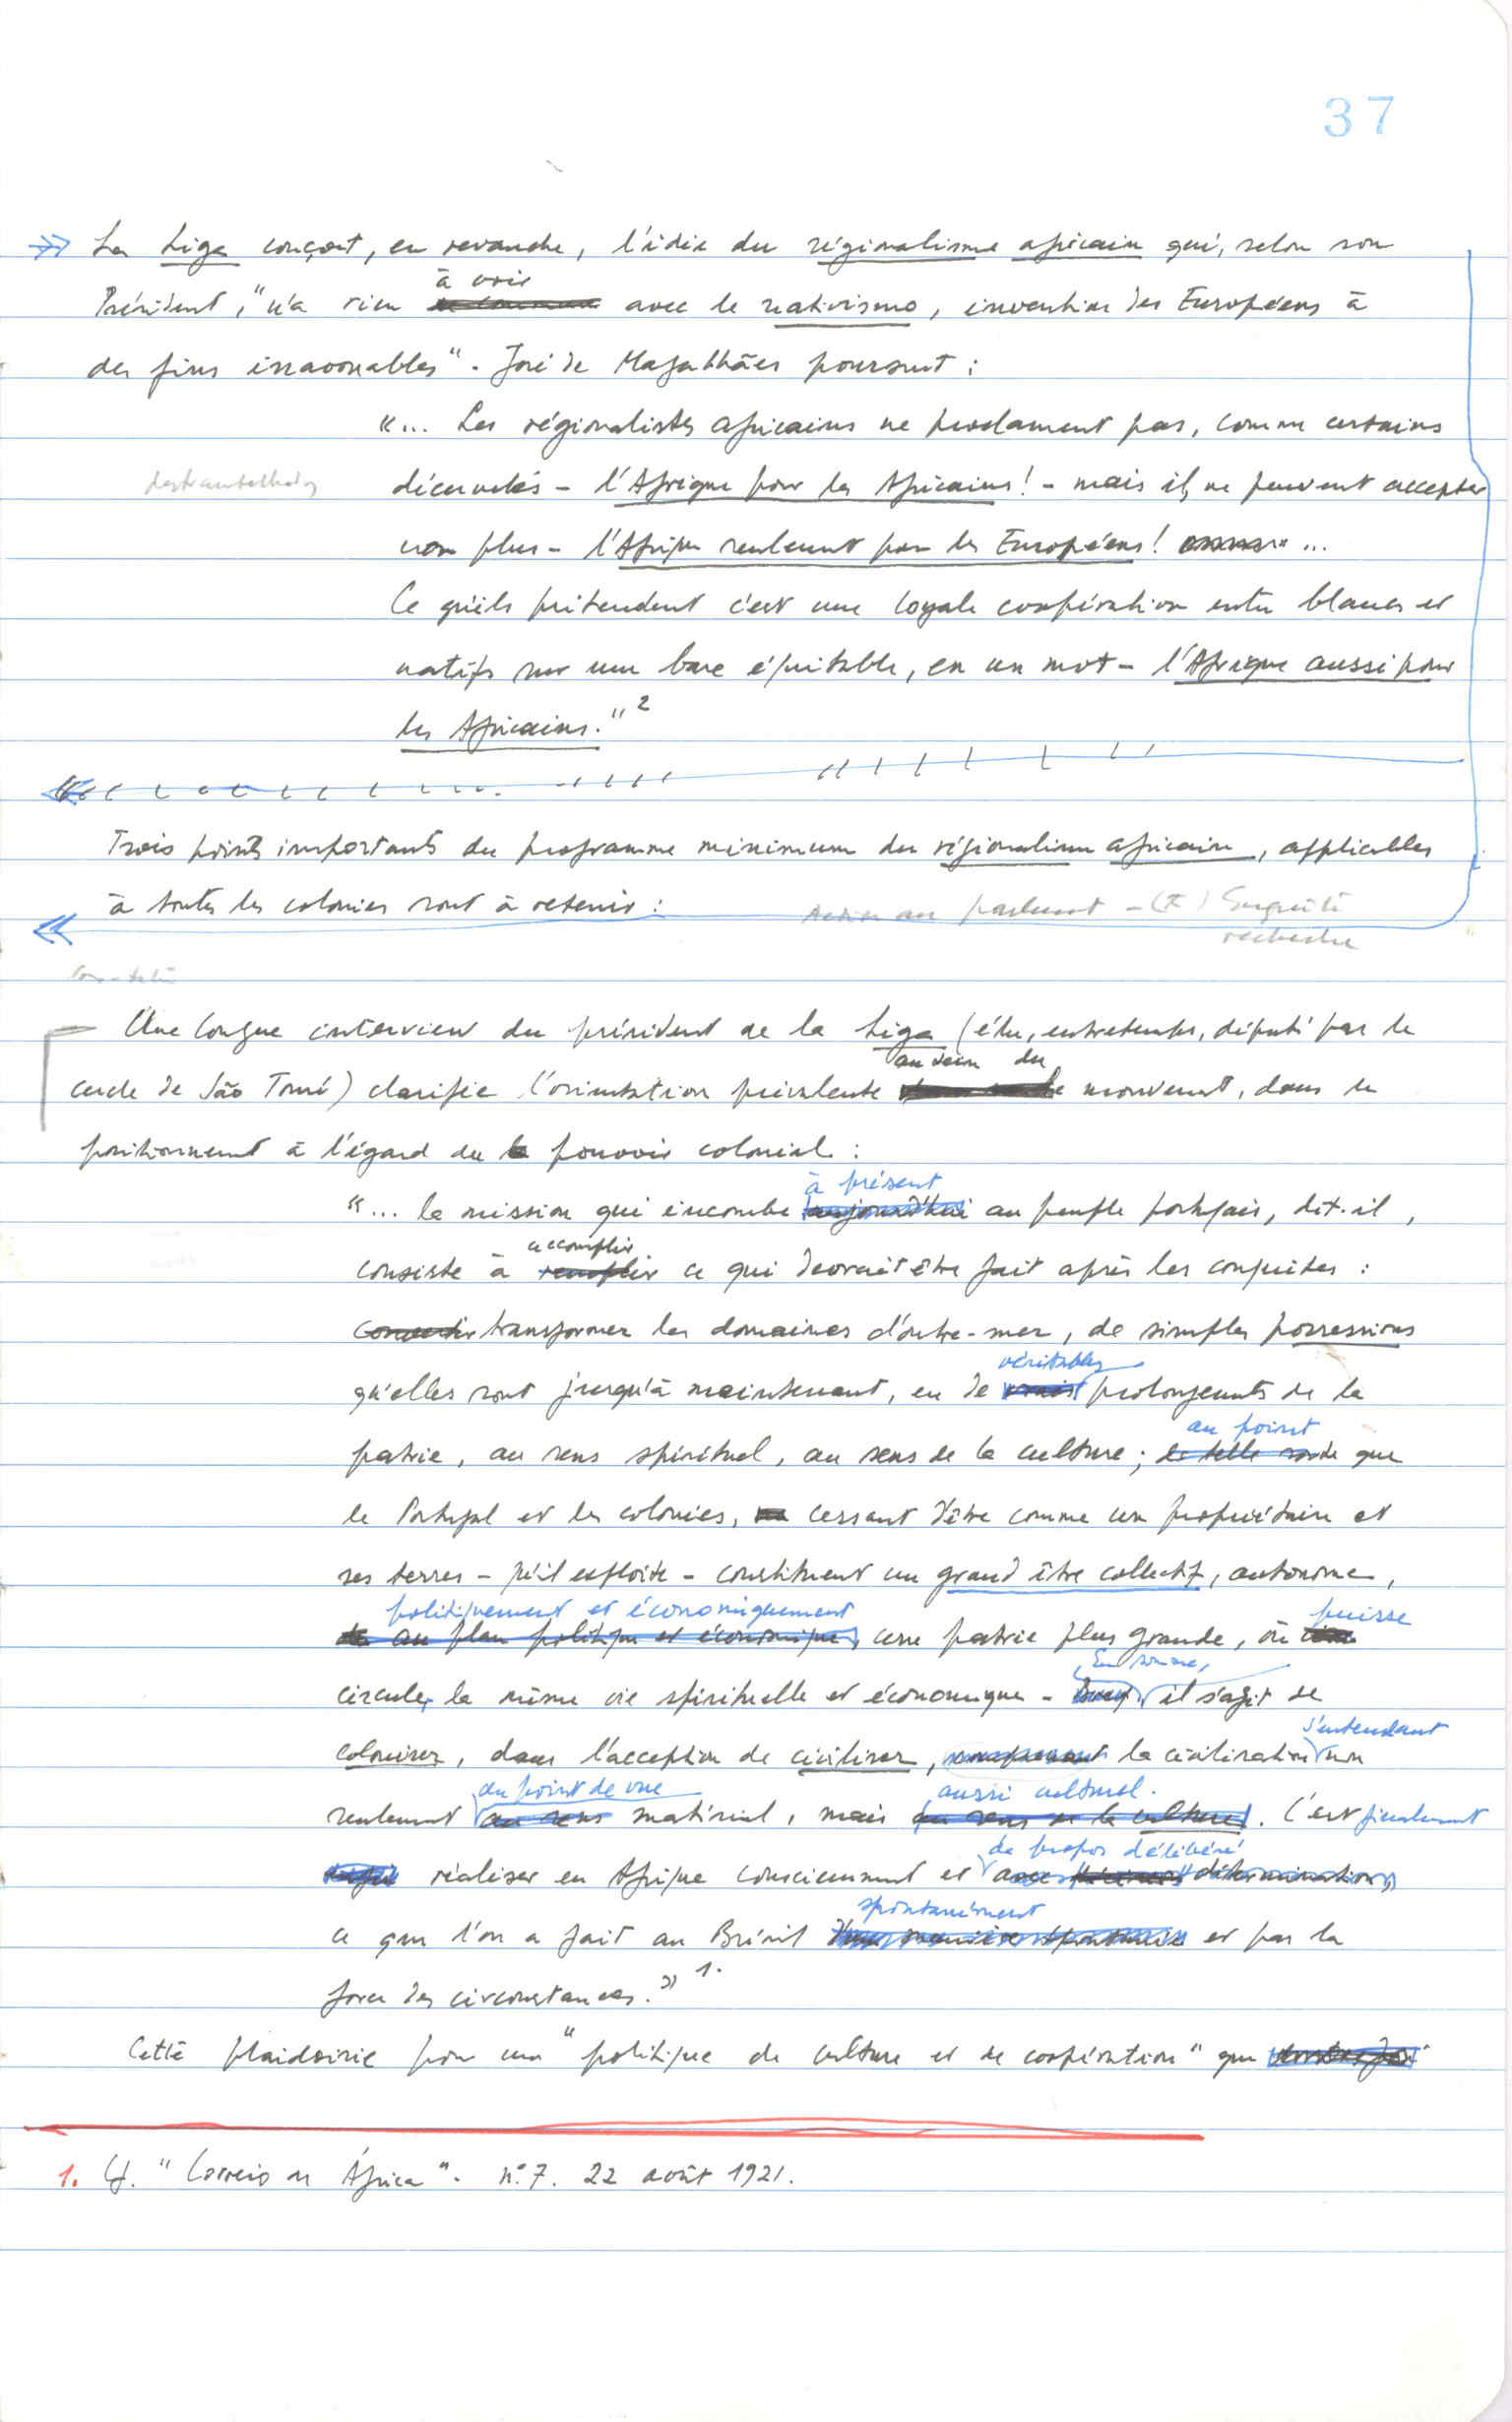 37
La Liga conçoit, en revanche, l'idée du régionalisme africain qui, selon son
à voir
Président, "n'a rien avec le nativismo, invention des Européens à
des fins inavouables". José de Magalhães poursuit :
"... Les régionalistes africains ne proclament pas, comme certains
décervelés - l'Afrique pour les Africains! - mais ils ne peuvent accepter
non plus - l'Afrique seulement pour les Européens! ...
Ce qu'ils prétendent c'est une loyale coopération entre blancs et
natifs sur une base équitable, en un mot - l'Afrique aussi pour
les Africains." 2
Trois points importants du programme minimum du régionalisme africain, applicables
à toutes les colonies sont à retenir :
recherche
Une longue interview du président de la Liga (élu, entretemps, député par le
au sein du
cercle de São Tomé) clarifie l'orientation prévalente mouvement, dans le
positionnement à l'égard du pouvoir colonial :
à présent
"... la mission qui incombe aujourd'hui au peuple portugais, dit-il,
accomplir
consiste à remplir ce qui devrait être fait après les conquêtes :
convertir transformer les domaines d'outre-mer, de simples possessions
véritables
qu'elles sont jusqu'à maintenant, en de vrais prolongements de la
au point
patrie, au sens spirituel, au sens de la culture ; de telle sorte que
le Portugal et les colonies, cessant d'être comme un propriétaire et
ses terres - qu'il exploite - constituent un grand être collectif, autonome,
politiquement et économiquement puisse
au plan politique et économique, cette patrie plus grande, où
En somme,
circuler la même vie spirituelle et économique - Bref, il s'agit de
s'entendant
coloniser, dans l'acception de civiliser, la civilisation non
au point de vue aussi culturel.
seulement au sens matériel, mais au sens de la culture. C'est finalement
de propos délibéré
réaliser en Afrique consciemment et avec détermination,
spontanément
ce que l'on a fait au Brésil d'une manière spontanée et par la
force des circonstances." 1.
Cette plaidoirie pour une "politique de culture et de coopération" que
1. Cf. "Correio de África". nº 7. 22 août 1921.